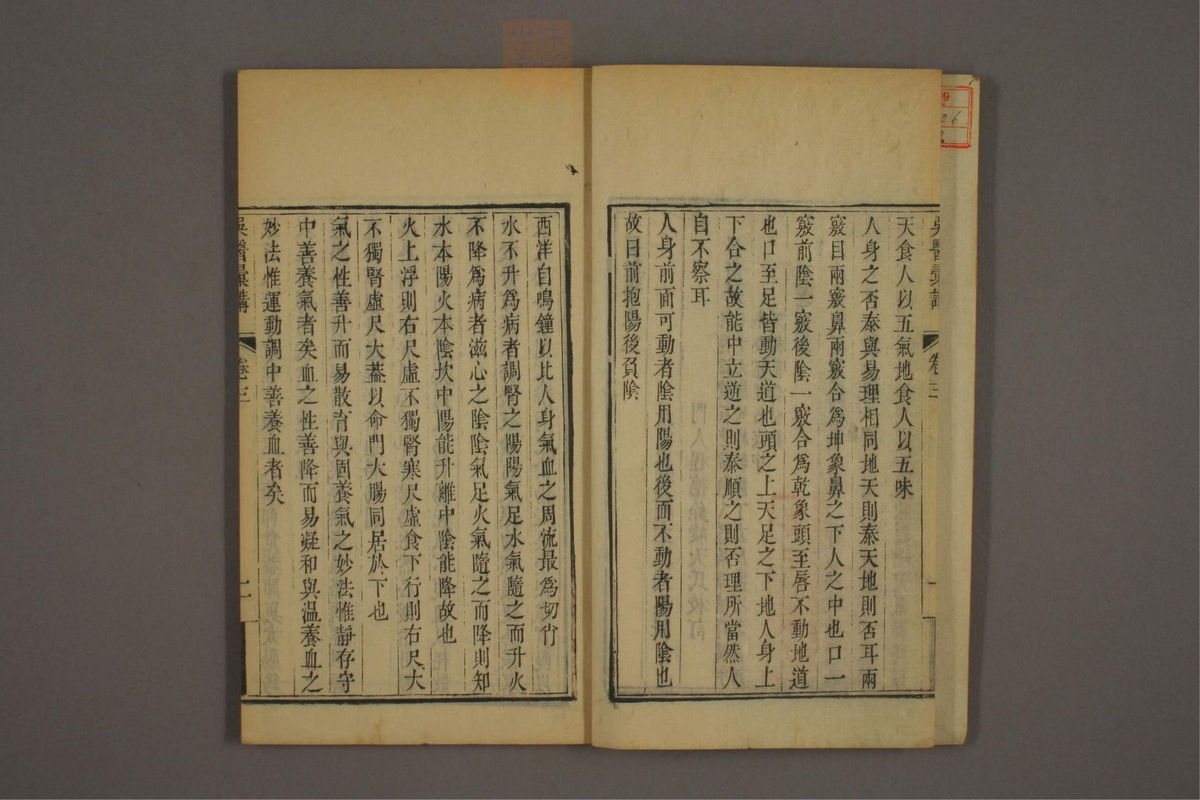 吳醫彙講
卷三
一
天食人以五氣地食人以五味
人身之否泰與易理相同地天則泰天地則否耳兩
竅目兩竅鼻兩竅合爲坤象鼻之下人之中也口一
竅前陰一竅後陰一竅合爲乾象頭至唇不動地道
也口至足皆動天道也頭之上天足之下地人身上
下合之故能中立逆之則泰順之則否理所當然人
自不察耳
人身前面可動者陰用陽也後面不動者陽用陰也
故曰前抱陽後負陰
西洋自鳴鐘以比人身氣血之周流最爲切當
水不升爲病者調腎之陽陽氣足水氣隨之而升火
不降爲病者滋心之陰陰氣足火氣隨之而降則知
水本陽火本陰坎中陽能升離中陰能降故也
火上浮則右尺虛不獨腎寒尺虛食下行則右尺大
不獨腎虛尺大蓋以命門大腸同居於下也
氣之性善升而易散育與固養氣之妙法惟靜存守
中善養氣者矣血之性善降而易凝和與温養血之
妙法惟運動調中善養血者矣
吳醫彙講
卷三
二
9
26
2